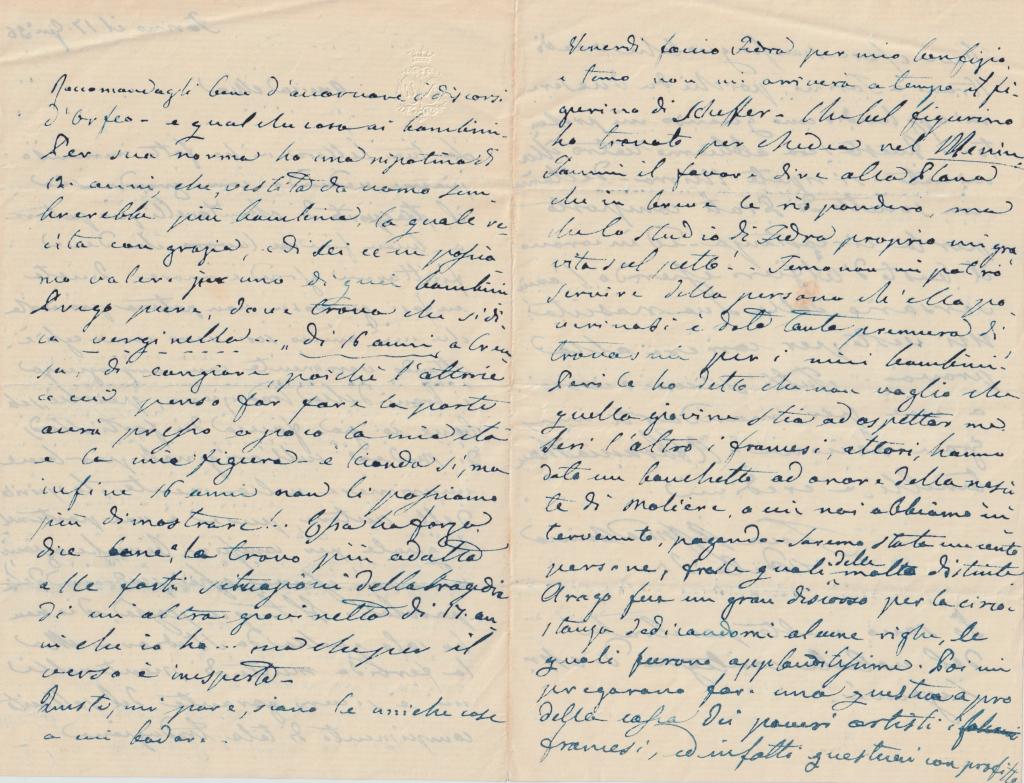 Raccomandagli bene d'accorciare i discorsi
d'Orfeo - e qualche cosa ai bambini.
Per sua norma ho una nipotina di
12. anni, che vestita da uomo sem-
brerebbe più bambina, la quale re-
cita con grazia, e di lei ce ne possia-
mo valere per uno di quei bambini
Prego pure, dove trova che si di-
ca verginella... „ di 16 anni, a Creu-
sa, di cangiare, poichè l'attrice
a cui penso far fare la parte
avrà presso a poco la mia età
e la mia figura - è bionda sì, ma
infine 16 anni non li possiamo
più dimostrare!.. Essa ha forza,
dice bene, la trovo più adatta
alle forti situazioni della tragedia
di un'altra giovinetta di 17. an-
ni che io ho... ma che per il
verso è inesperta -
Queste, mi pare, siano le uniche cose
a cui badare..
Venerdì faccio Fedra per mio benefizio,
e temo non mi arriverà a tempo il fi-
gurino di Scheffer - Che bel figurino
ho trovato per Medea nel
Fammi il favore dire alla
che in breve le risponderò, ma
che lo studio di Fedra proprio mi gra-
vita sul petto!.. Temo non mi potrò
servire della persona ch'ella po-
verina si è data tanta premura di
trovarmi per i miei bambini!
Però le ho detto che non voglio che
quella giovine stia ad aspettar me
Ieri l'altro i francesi, attori, hanno
dato un banchetto ad onore della nasci-
te di Moliere, a cui noi abbiamo in-
tervenuto, pagando - Saremo state un cento
persone, fra le quali delle molto distinte
Arago fece un gran discorso per la circo-
stanza dedicandomi alcune righe, le
quali furono applauditissime. Poi mi
pregarono fare una questua a pro
della cassa dei poveri artisti
francesi, ed infatti questuai con profitto